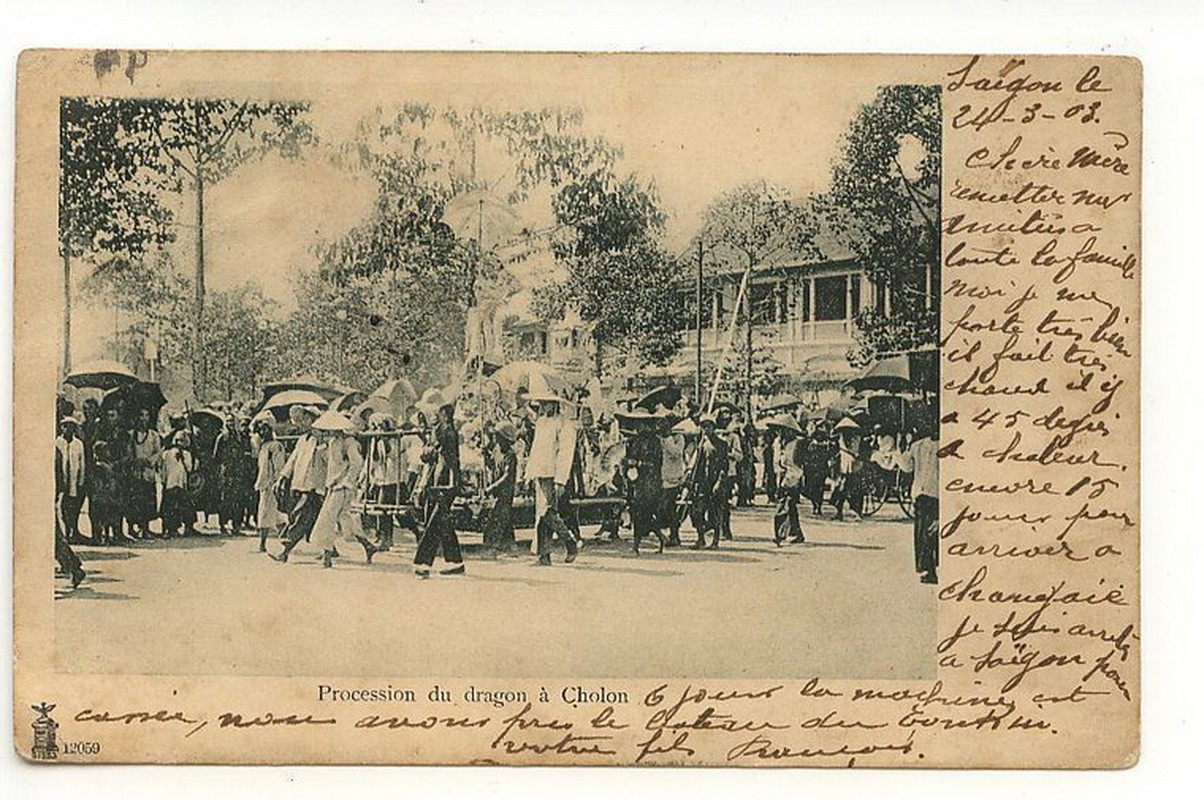 Saïgon le
24-3-03.
Chère Mère
remetter
amitiés a
toute la famille
Moi je me
porte très bien
il fait très
chaud il y
a 45 degrés
chaleur.
encore 15
jours pour
arriver a
je suis arrêté
a Saïgon pour
Procession du dragon à Cholon
6 jours la machine est
nous avons pris le bateau du Tonkin.
votre fils François.
12059